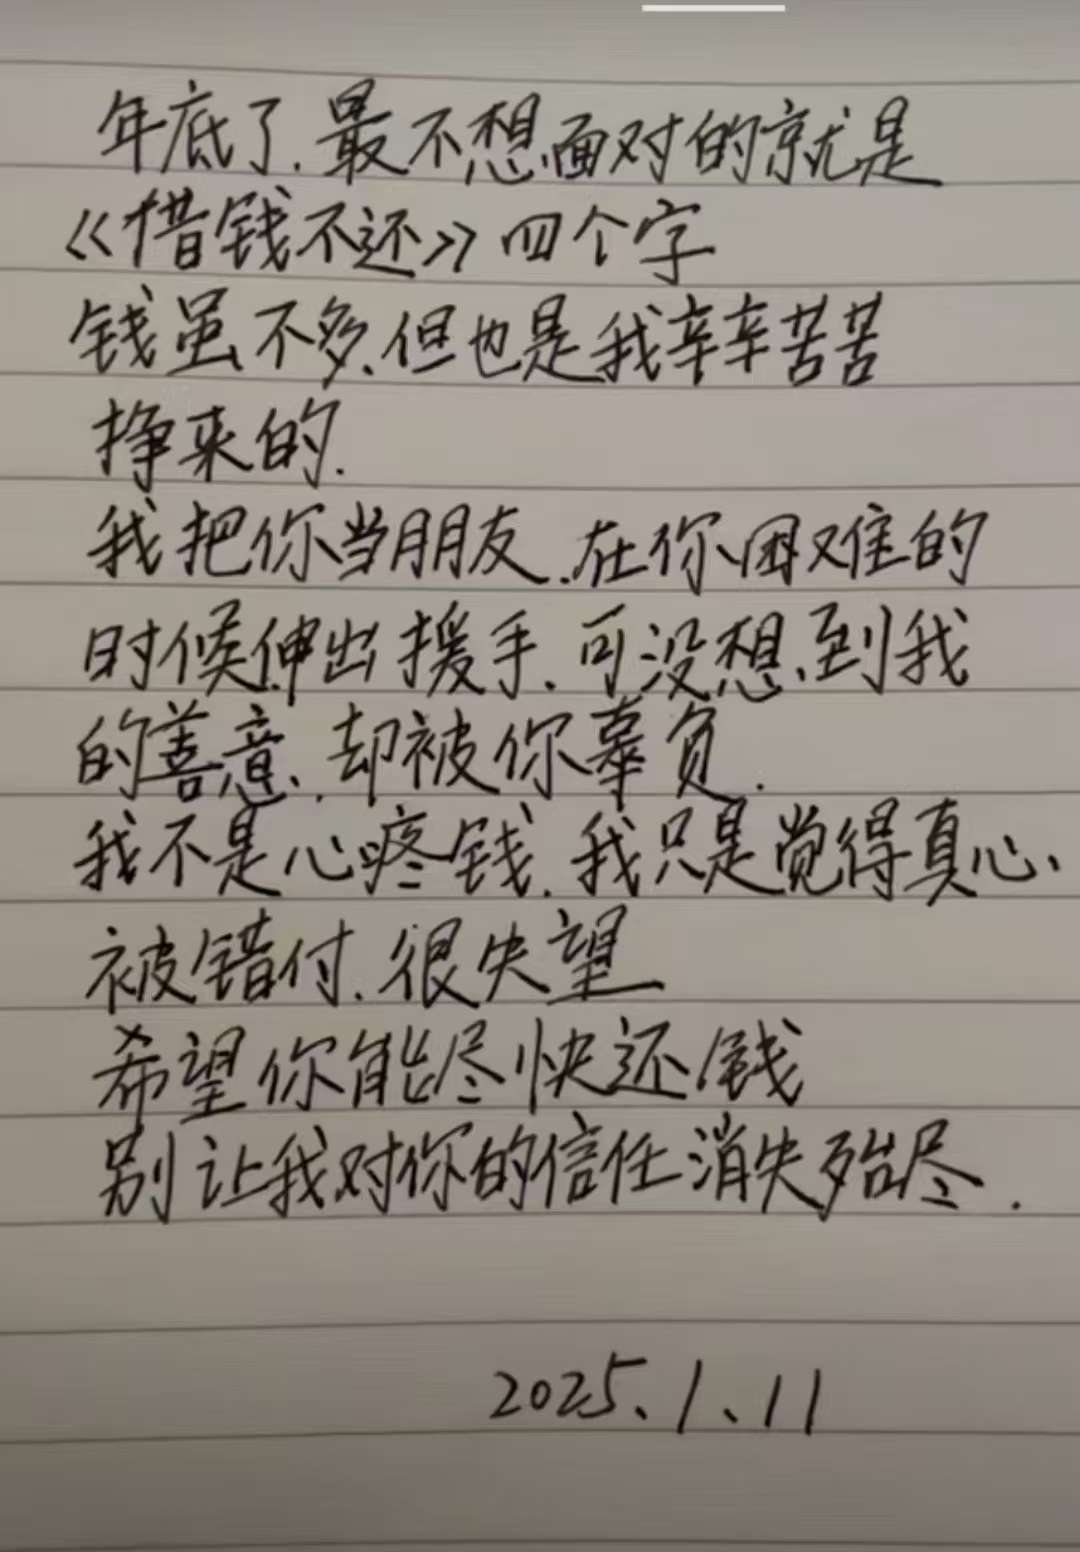 年底了.最不想面对的就是
《借钱不还》四个字
钱虽不多.但也是我辛辛苦苦
挣来的.
我把你当朋友.在你困难的
时候伸出援手.可没想到我
的善意.却被你辜负.
我不是心疼钱.我只是觉得真心
被错付.很失望
希望你能尽快还钱
别让我对你的信任消失殆尽.
2025.1.11